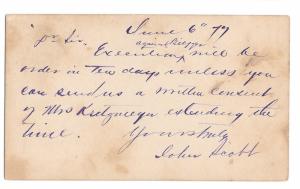 June 6th 79
Dr Sir.
against
Execution, will be
order in ten days unless you
can send us a written consent
of Mrs Kritzmeyer extending the
time. Yours truly
John Scott